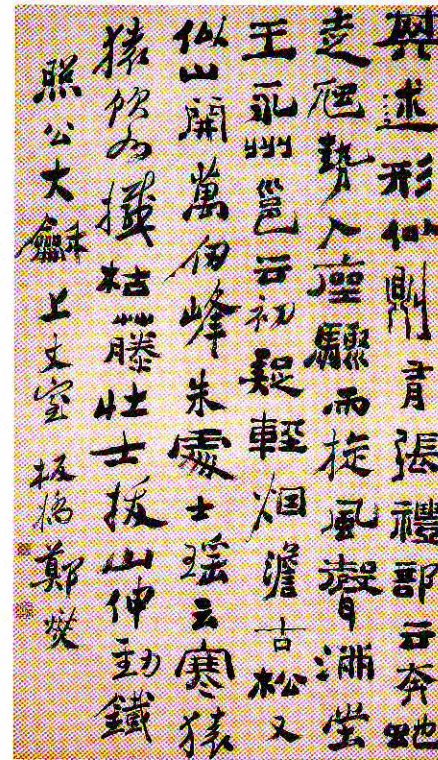 興述形似則有張禮部云奔虵
走虺勢入座驟雨旋風聲滿堂
王永州邕云初疑輕烟澹古松又
似山開萬仞峰朱處士瑶云寒猿
猿飲水撼枯藤壯士拔山伸勁鐵
照公大龢上丈室 板橋鄭燮